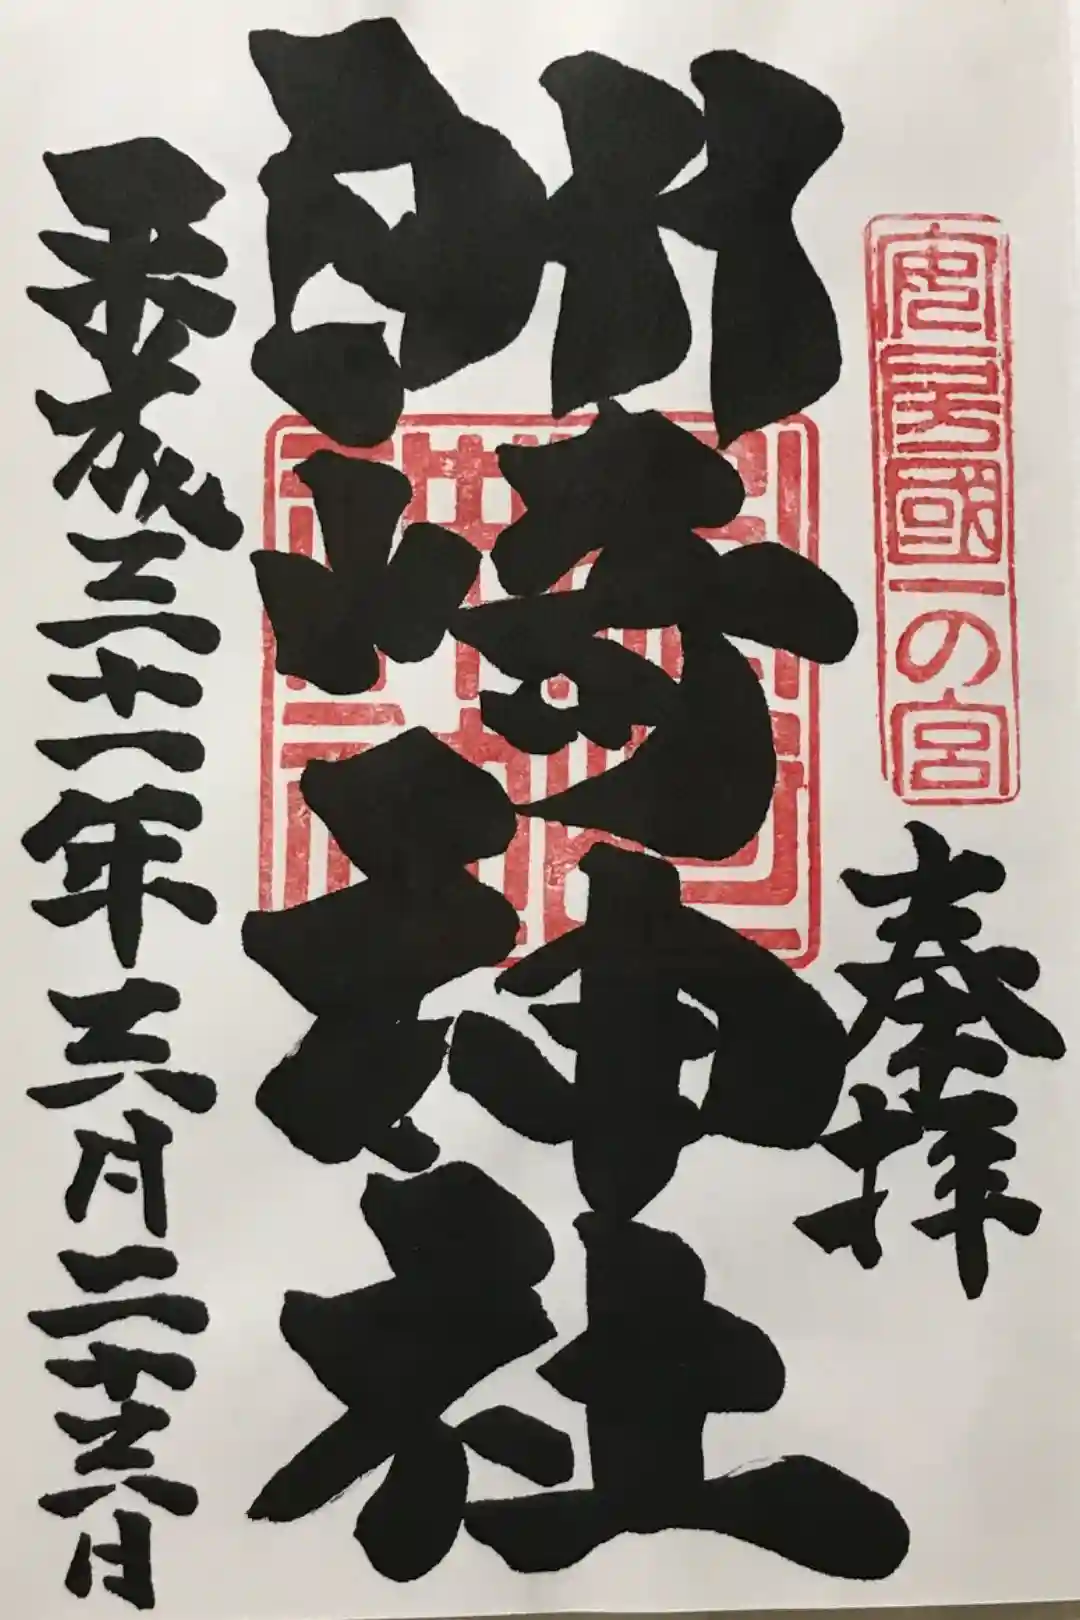 安房國一の宮
奉拝
洲崎神社
平成三十一年三月二十六日